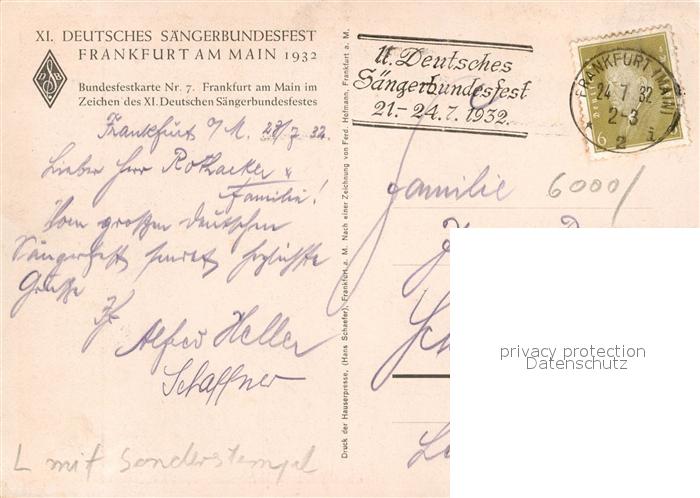 XI. DEUTSCHES SÄNGERBUNDESFEST
FRANKFURT AM MAIN 1932
DSB
Bundesfestkarte Nr. 7. Frankfurt am Main im
Zeichen des XI. Deutschen Sängerbundesfestes
Frankfurt a/M. 23/7 32.
Lieber Herr Rothacker u
Familie!
Vom großen deutschen
Sängerfest sendet herzlichste
Grüße
Alfred Heller
Schaffner
L mit Sonderstempel
Druck der Hauserpresse, (Hans Schaefer), Frankfurt a. M. Nach einer Zeichnung von Ferd. Hofmann, Frankfurt a. M.
11. Deutsches
Sängerbundesfest
21.-24.7.1932.
FRANKFURT (MAIN)
24.7.32
2-3
2 i
6
Familie
6000/
privacy protection
Datenschutz